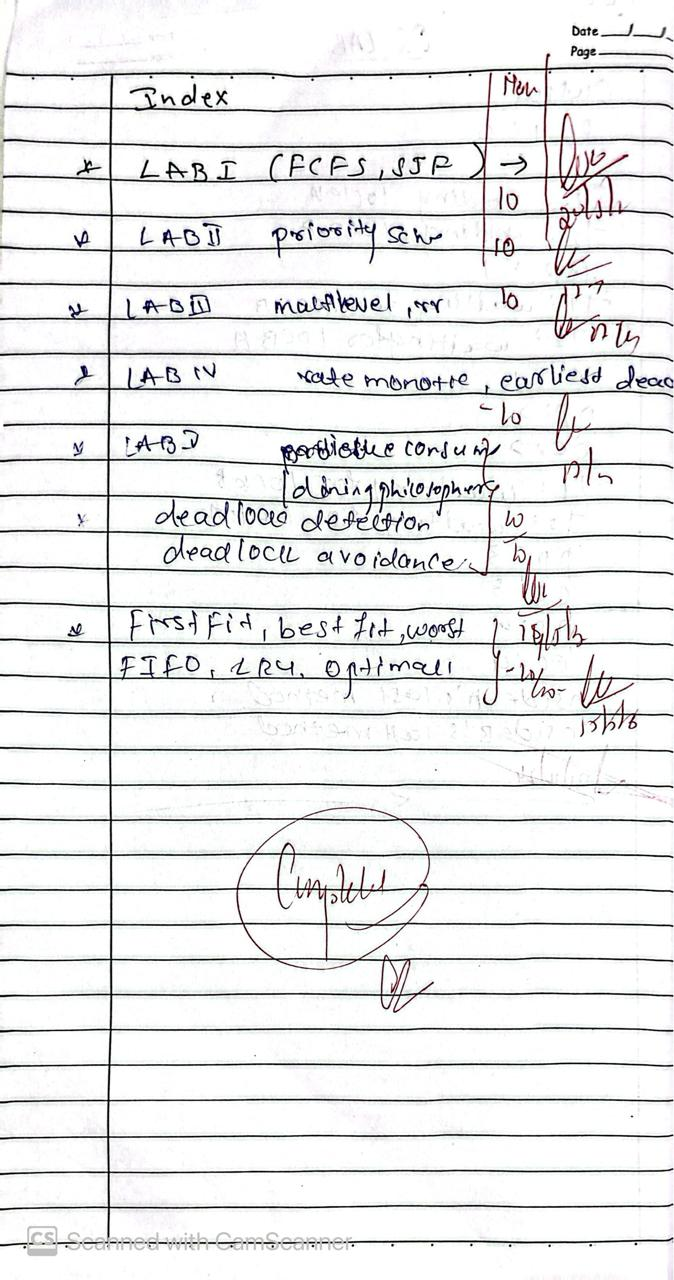 Date
Page
Index
LAB I (FCFS, SJF) →
10
LAB II priority sche
10
LAB III multilevel, rr 10
LAB IV rate monotie, earliest dead
-10
LAB V consum
/dining philosophers
deadlock detection 10
deadlock avoidance 10
First Fit, best fit, worst
FIFO, LRU, optimall
Complete
CS Scanned with CamScanner